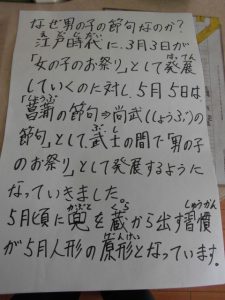 なぜ男の子の節句なのか?
江戸時代に、3月3日が
「女の子のお祭り」として発展
していくのに対し、5月5日は、
「菖蒲の節句⇒尚武(しょうぶ)の
節句」として、武士の間で「男の子
のお祭り」として発展するように
なっていきました。
5月頃に兜を蔵から出す習慣
が5月人形の原形となっています。